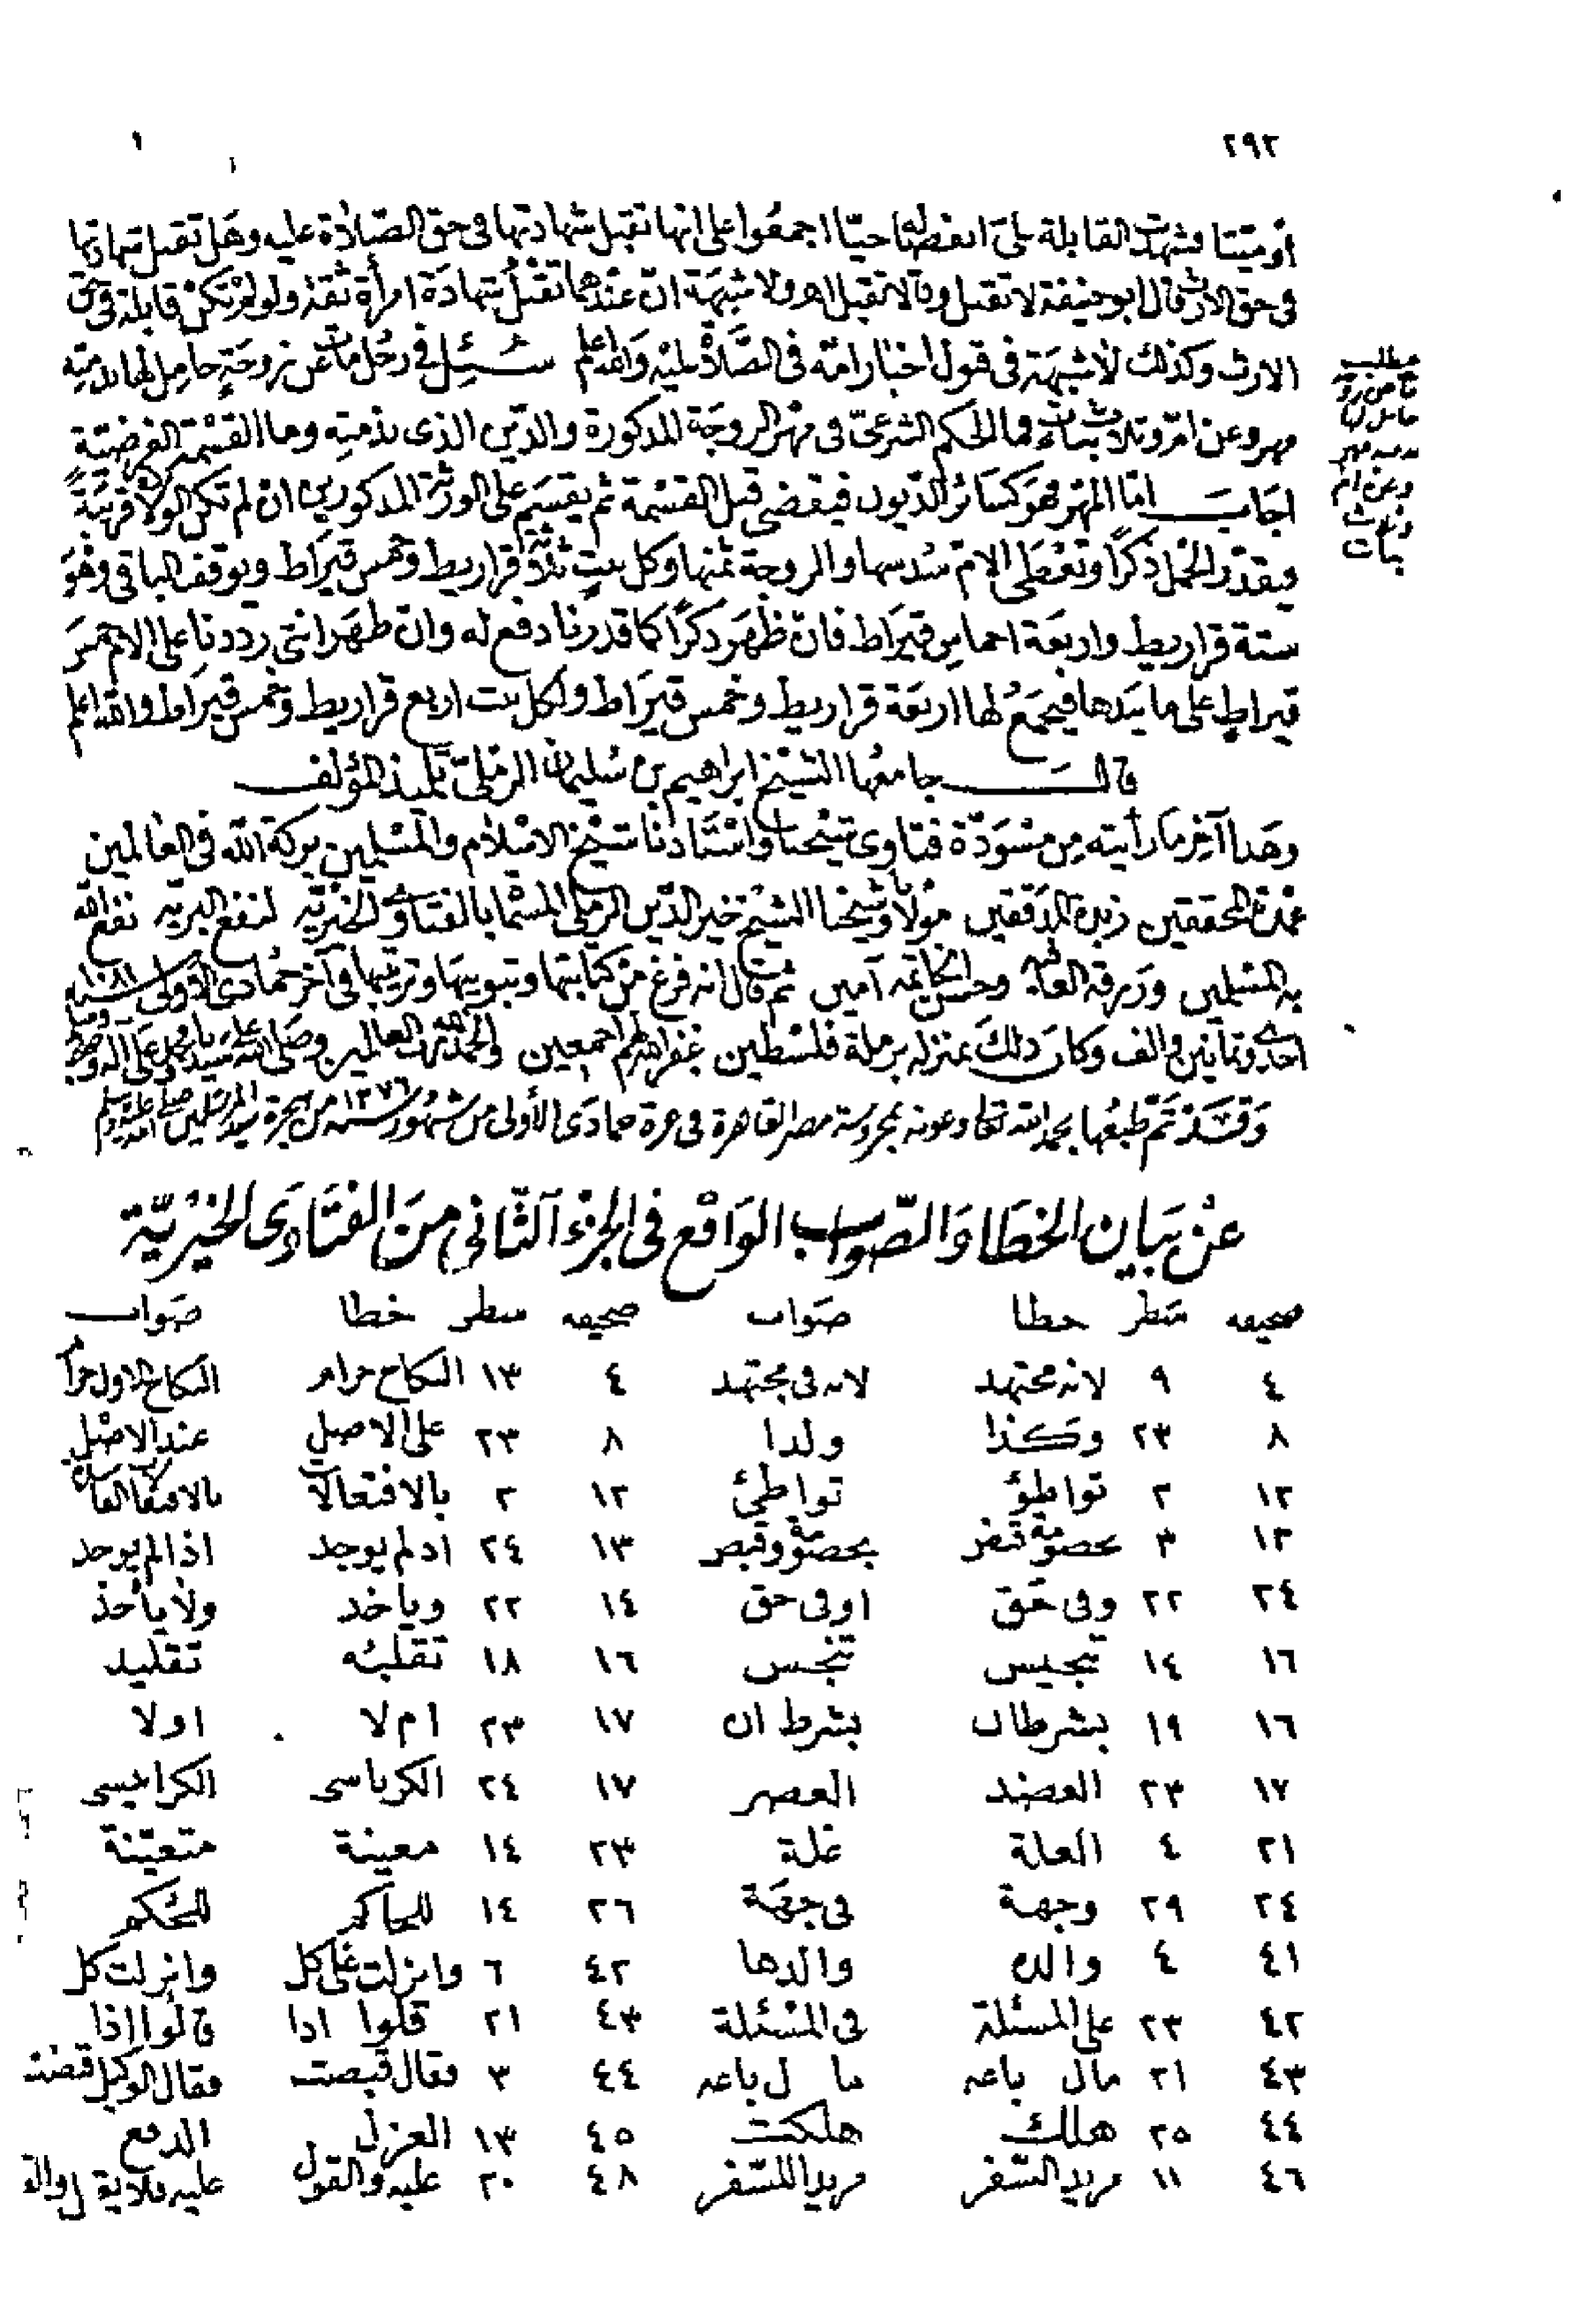 ٢٩٢
أو ميتا فشهدت القابلة على انفصاله حيا اجمعوا على انها تقبل شهادتها فى حق الصلاة عليه وهل تقبل شهادتها
فى حق الارث قال ابو حنيفة لا تقبل وقالا تقبل اه ولا شبهة ان عندهما تقبل شهادة امرأة ثقة ولو لم تكن قابلة فى حق
الارث وكذلك لا شبهة فى قبول اخبار امه فى الصلاة عليه والله اعلم سئل فى رجل مات عن زوجة حامل لها بذمته
مهر وعن ام وثلاث بنات فما الحكم الشرعى فى مهر الزوجة المذكورة والدين الذى بذمته وما القسمة الفرضية
اجاب اما المهر فهو كسائر الديون فيقضى قبل القسمة ثم يقسم على الورثة المذكورين ان لم تكن الولادة قريبة
فيقدر الحمل ذكرا وتعطى الام سدسها والزوجة ثمنها وكل بنت ثلاثة قراريط وخمس قيراط ويوقف الباقى وهو
ستة قراريط واربعة اخماس قيراط فان ظهر ذكرا كما قدرنا دفع له وان ظهر انثى رددنا على الام خمس
قيراط على ما بيدها فيجمع لها اربعة قراريط وخمس قيراط ولكل بنت اربع قراريط وخمس قيراط والله اعلم
قال جامعها الشيخ ابراهيم بن سليمان الرملى تلميذ المؤلف
وهذا آخر ما رأيته من مسودة فتاوى شيخنا واستاذنا شيخ الاسلام والمسلمين بركة الله فى العالمين
عمدة المحققين زين المدققين مولانا وشيخنا الشيخ خير الدين الرملى المسماة بالفتاوى الخيرية لنفع البرية نفع الله
به المسلمين ورزقه العافية وحسن الخاتمة آمين ثم قال انه فرغ من كتابتها وتبويبها وترتيبها فى آخر جمادى الأولى سنة ١٠٨١
احدى وثمانين والف وكان ذلك بمنزله برملة فلسطين غفر الله لهم اجمعين والحمد لله رب العالمين وصلى الله على سيدنا محمد وعلى آله وصحبه
وقد تم طبعها بحمد الله تعالى وعونه بمحروسة مصر القاهرة فى غرة جمادى الأولى من شهور سنة ١٢٧٦ من هجرة سيد المرسلين صلى الله عليه وسلم
مطلب
مات عن زوجة
حامل لها
بذمته مهر
وعن ام
وثلاث
بنات
عن بيان الخطا والصواب الواقع فى الجزء الثانى من الفتاوى الخيرية
صحيفه سطر خطا صواب صحيفه سطر خطا صواب
٤ ٩ لانه مجتهد لانه فى مجتهد ٤ ١٣ النكاح حرام النكاح الاول حرام
٨ ٢٣ وكذا ولذا ٨ ٢٣ على الاصيل عند الاصيل
١٢ ٢ تواطؤ تواطئ ١٢ ٢ بالافتعالات
١٣ ٣ ١٣ ٢٤ اذ لم يوجد اذا لم يوجد
٢٤ ٢٢ وفى حق اوفى حق ١٤ ٢٢ وياخذ ولا ياخذ
١٦ ١٤ تنجيس تنجس ١٦ ١٨ تقلبه تقليد
١٦ ١٩ بشرطان بشرط ان ١٧ ٢٣ ام لا اولا
١٧ ٢٣ العضد العصر ١٧ ٢٤ الكرباسى الكرابيسى
٢١ ٤ العلة غلة ٢٣ ١٤ معينة متعينة
٢٤ ٢٩ وجهة فى جهة ٢٦ ١٤ للحاكم للحكم
٤١ ٤ والده والدها ٤٢ ٦ وانزلت على كل وانزلت كل
٤٢ ٢٣ على المسئلة فى المسئلة ٤٣ ٢١ قلوا اذا قالوا اذا
٤٣ ٢١ مال باعه ما ل باعه ٤٤ ٣ وقال قبضت فقال الوكيل قبضت
٤٤ ٢٥ هلك هلكت ٤٥ ١٣ العزل الدفع
٤٦ ١١ مريد السفر مريدا للسفر ٤٨ ٢٠ عليه والقول عليه